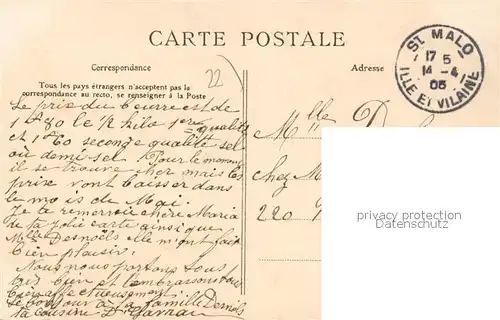 CARTE POSTALE
Correspondance
Adresse
Tous les pays étrangers n'acceptent pas la
correspondance au recto, se renseigner à la Poste
22
ST MALO
17 5
14 - 4
05
ILLE ET VILAINE
Le prix du beurre est de
1 f 80 le ½ kilo 1ère qualité
et 1 f 60 seconde qualité sel
ou demi-sel. Pour le moment
il se trouve cher mais les
prix vont baisser dans
le mois de Mai.
Je te remercie chère Maria
de ta jolie carte ainsi que
Melle Desnoës elle m'ont fait
bien plaisir.
Nous nous portons tous
très bien et t'embrassons tous
bien affectueusement
Le bonjour à la famille Desnoës
ta cousine
Mlle D
chez M
220
privacy protection
physical writing